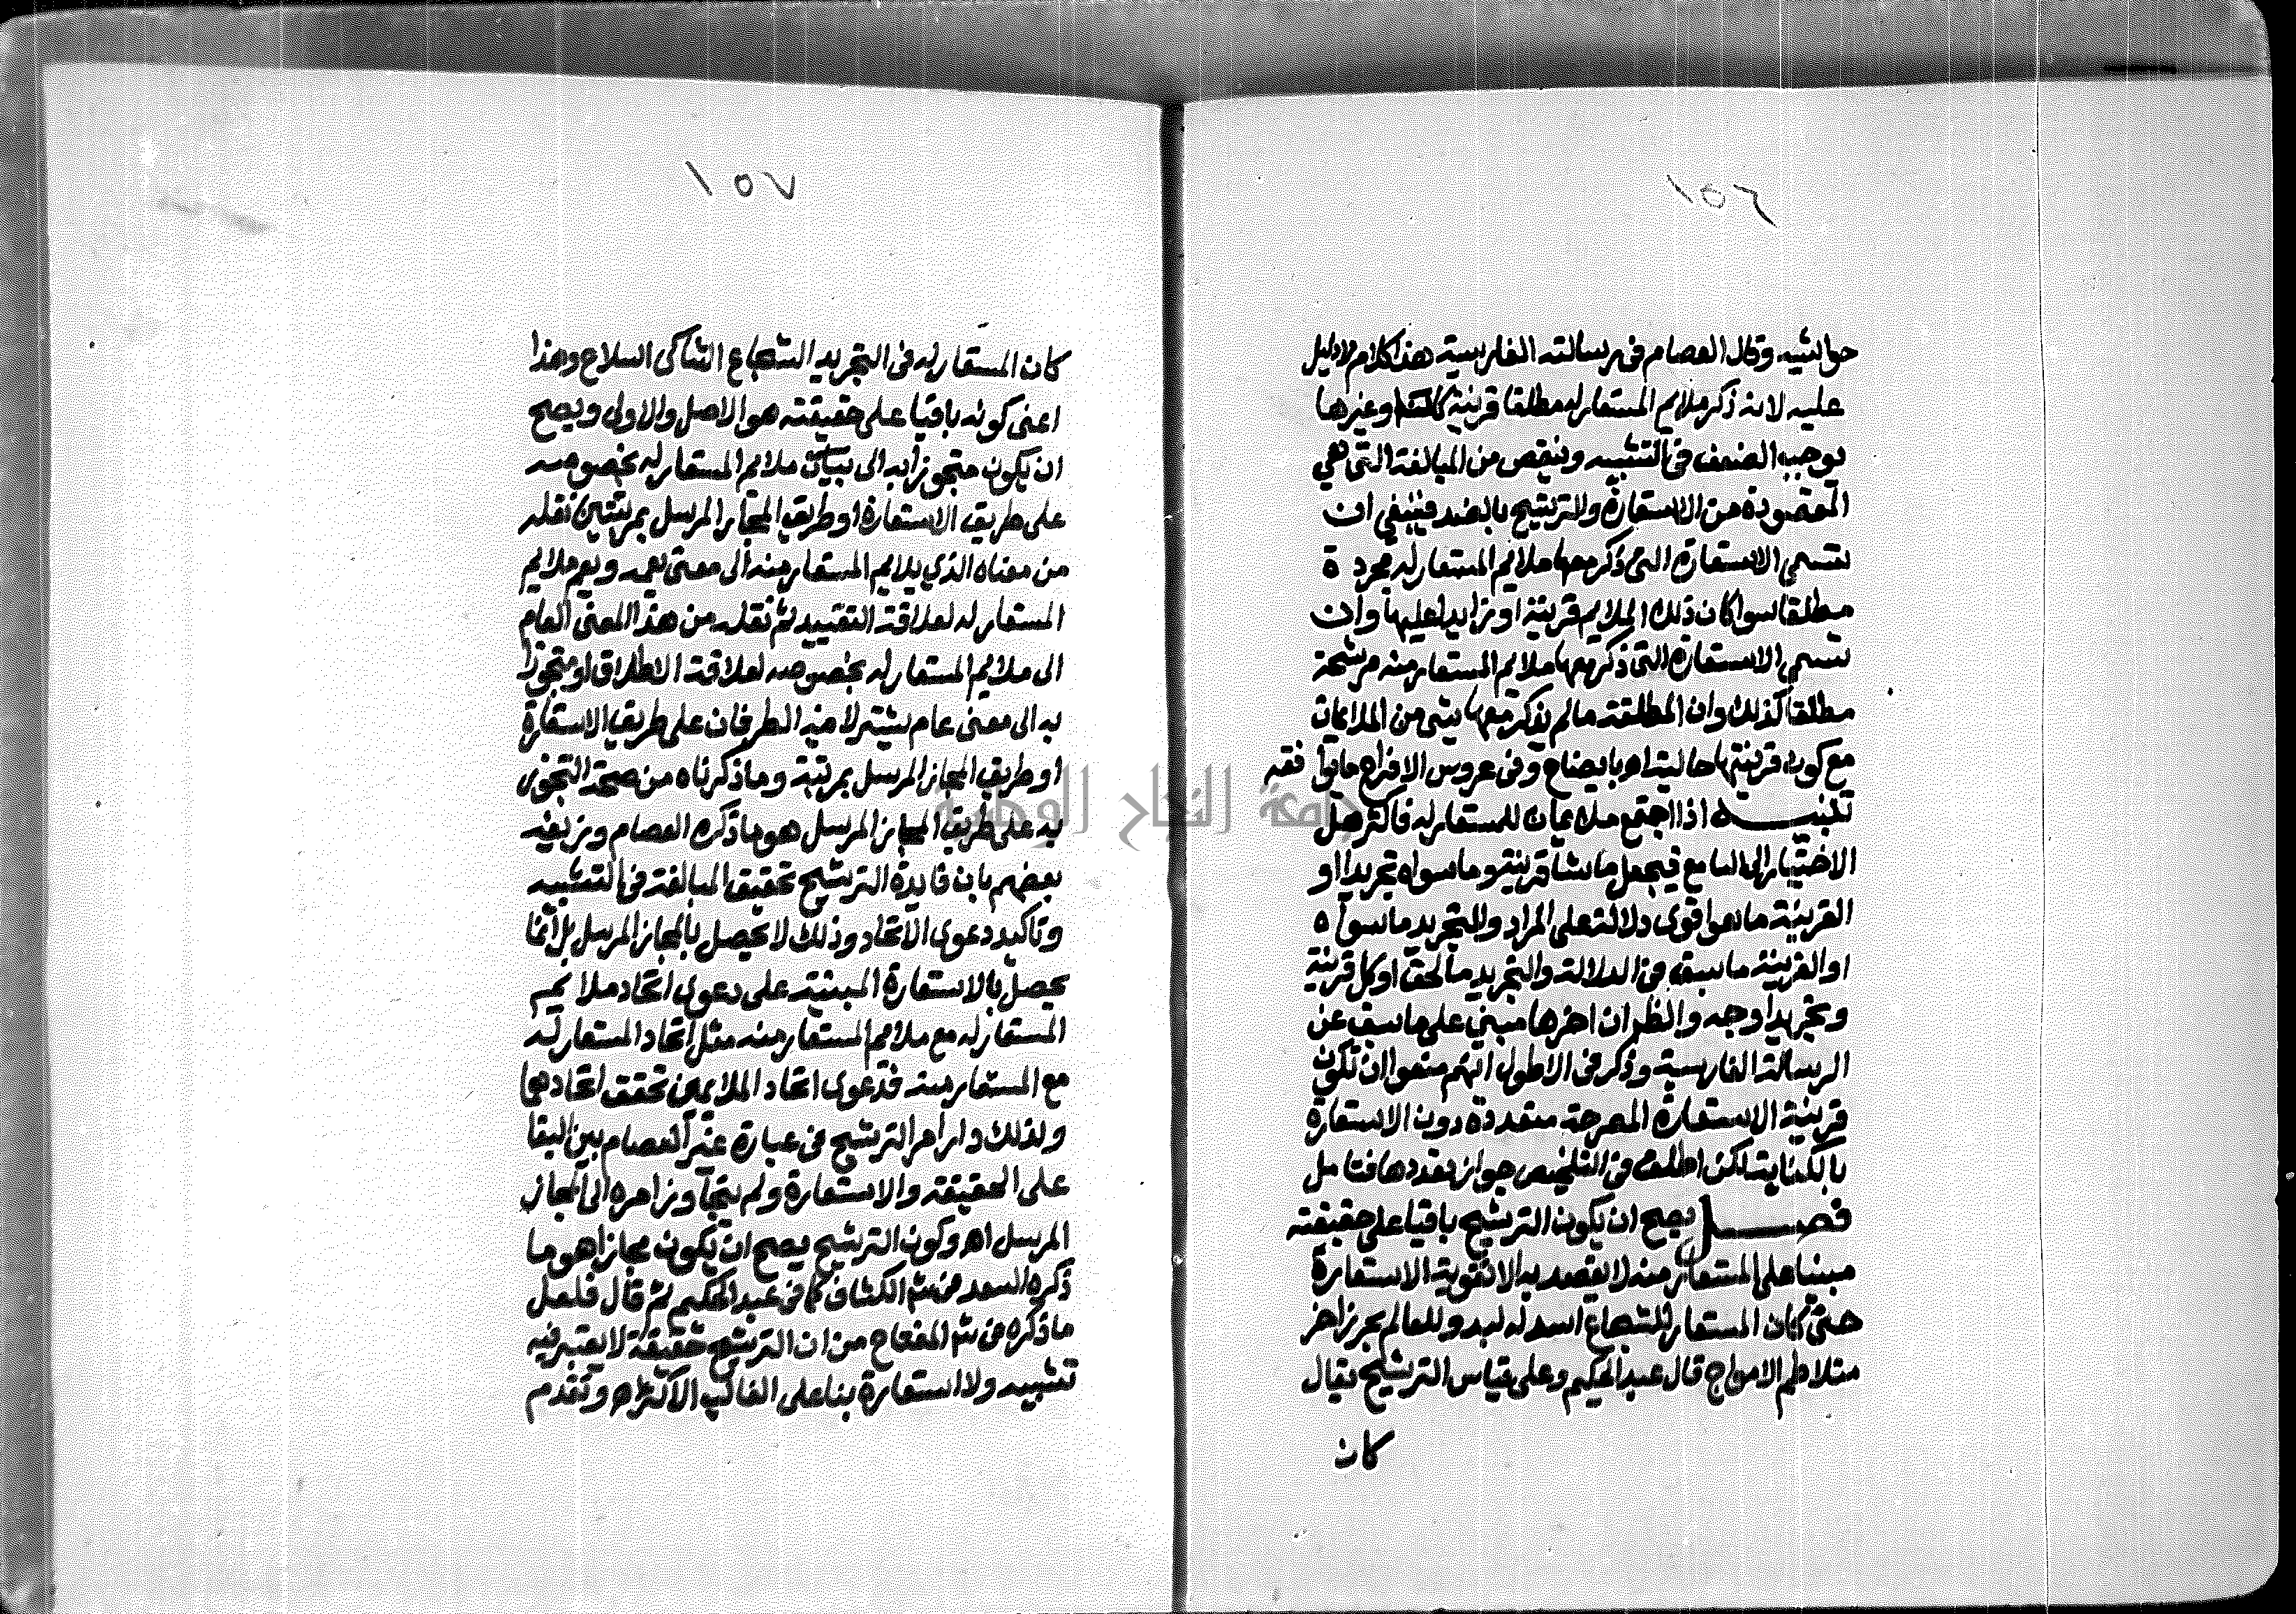 ١٥٦
حواشيه وقال العصام في رسالته الفارسية هذا كلام لا دليل
عليه لانه ذكر ملايم المستعار له مطلقا قرينة كانت او غيرها
يوجب الضعف في التشبيه وينقص من المبالغة التي هي
المقصودة من الاستعارة والترشيح بالضد فينبغي ان
تسمي الاستعارة التي ذكر معها ملايم المستعار له مجردة
مطلقا سوا كان ذلك الملايم قرينة او زايدا عليها وان
تسمي الاستعارة التي ذكر معها ملايم المستعار منه مرشحة
مطلقا كذلك وان المطلقة مالم يذكر معها شي من الملايمات
مع كون قرينتها حالية اه بايضاح وفي عروس الافراح ما يوافقه
تنبيه اذا اجتمع ملايمان للمستعار له فاكثر هل
الاختيار الى السامع فيجعل ما شا قرينة وما سواه تجريدا او
القرينة ما هو اقوى دلالة على المراد والتجريد ما سواه
او القرينة ما سبق في الدلالة والتجريد ما لحق او كل قرينة
وتجريد اوجه والظاهر ان اخرها مبني على ما سبق عن
الرسالة الفارسية وذكر في الاطول انهم منعوا ان تكون
قرينة الاستعارة المصرحة متعددة دون الاستعارة
بالكناية لكن اطلق في التلخيص جواز تعددها فتامل
فصل يصح ان يكون الترشيح باقيا على حقيقته
مبنيا على المستعار منه لا يقصد به الا تقوية الاستعارة
حتى كان المستعار للشجاع اسد له لبد وللعالم بحر زاخر
متلاطم الامواج قال عبد الحكيم وعلى قياس الترشيح يقال
كان
١٥٧
كان المستعار له في التجريد الشجاع الشاكي السلاح وهذا
اعني كونه باقيا على حقيقته هو الاصل والاولى ويصح
ان يكون متجوزا به الى بيان ملايم المستعار له بخصوصه
على طريق الاستعارة او طريق المجاز المرسل بمرتبتين نقله
من معناه الذي يلايم المستعار منه الى معنى يعمه ويعم ملايم
المستعار له لعلاقة التقييد ثم نقله من هذا المعنى العام
الى ملايم المستعار له بخصوصه لعلاقة الاطلاق او متجوزا
به الى معنى عام يشترك فيه الطرفان على طريق الاستعارة
او طريق المجاز المرسل بمرتبة وما ذكرناه من صحة التجوز
به على طريق المجاز المرسل هو ما ذكره العصام وزيفه
بعضهم بان فايدة الترشيح تحقيق المبالغة في التشبيه
وتاكيد دعوى الاتحاد وذلك لا يحصل بالمجاز المرسل بل انما
يحصل بالاستعارة المبنية على دعوى اتحاد ملايم
المستعار له مع ملايم المستعار منه مثل اتحاد المستعار له
مع المستعار منه فدعوى اتحاد الملايمين تحقق اتحادهما
ولذلك دار امر الترشيح في عبارة غير العصام بين البقا
على الحقيقة والاستعارة ولم يتجاوز امره الى المجاز
المرسل اه وكون الترشيح يصح ان يكون مجازا هو ما
ذكره السعد في شرح الكشاف كما في عبد الحكيم ثم قال فلعل
ما ذكره في شرح المفتاح من ان الترشيح حقيقة لا يعتبر فيه
تشبيه ولا استعارة بنا على الغالب الاكثر اه وتقدم
جامعة النجاح الوطنية